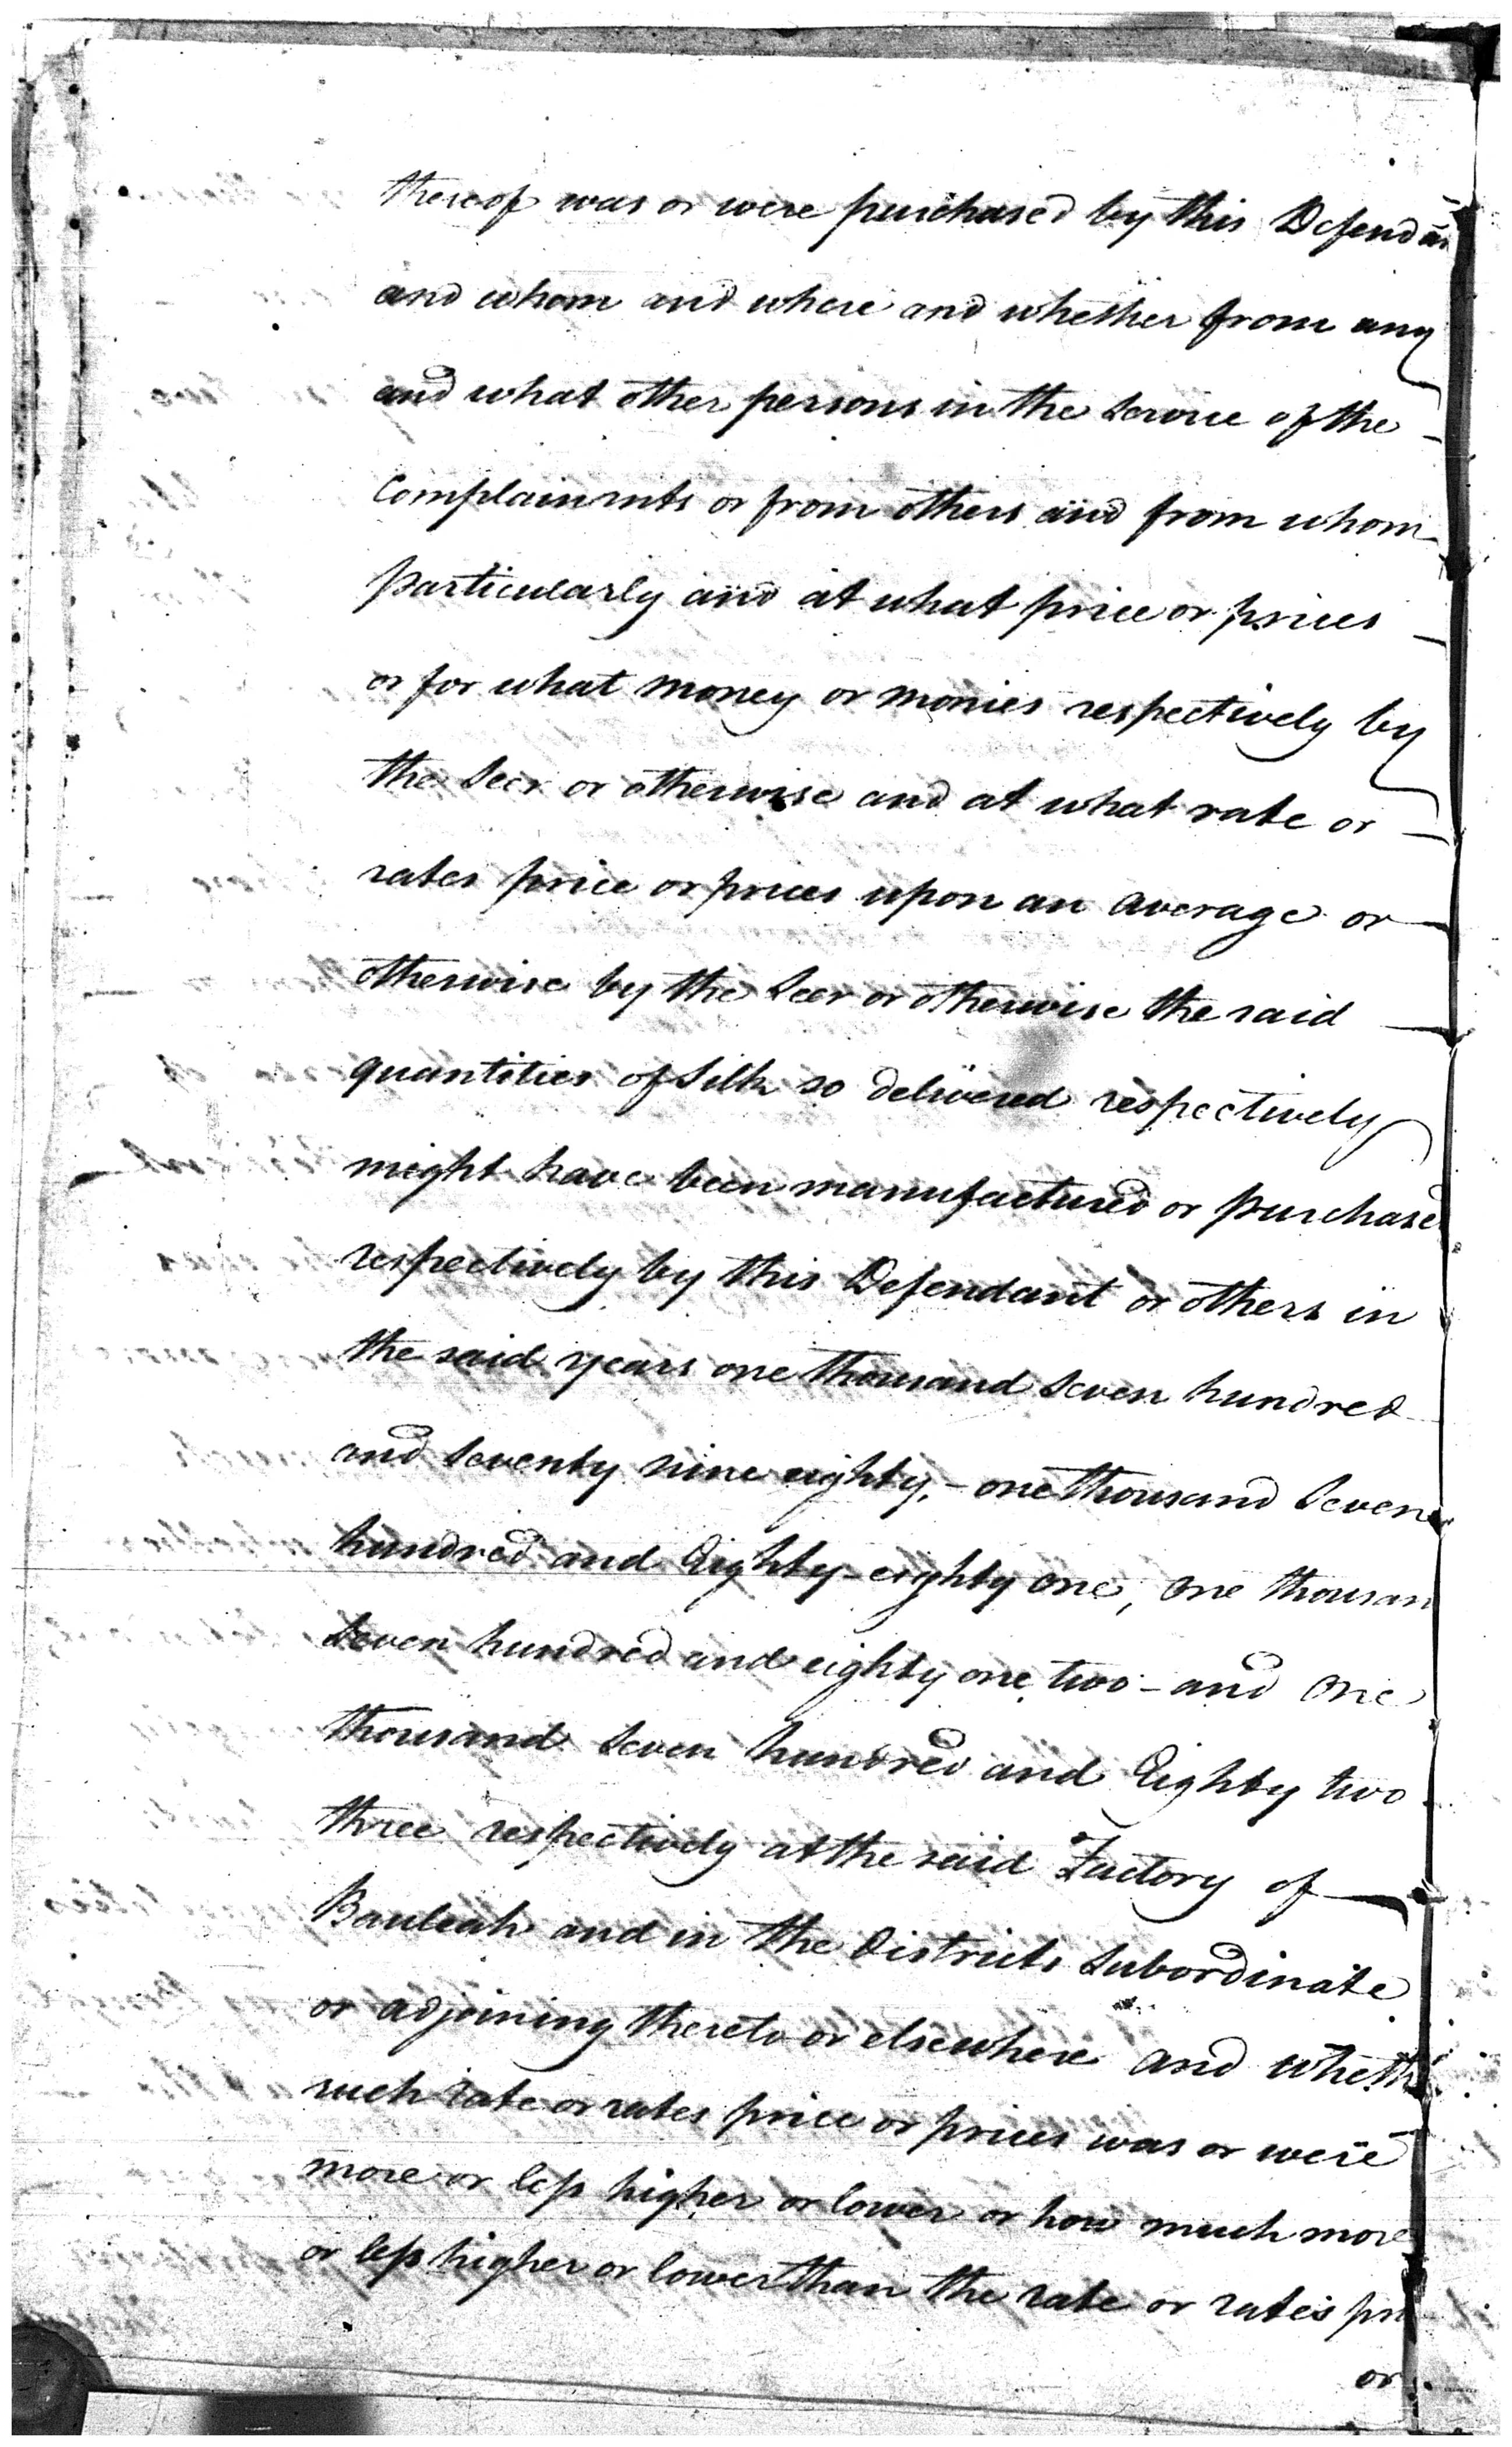 thereof was or were purchased by this Defendan
and whom and where and whether from any
and what other persons in the Service of the
Complainants or from others and from whom
particularly and at what price or prices
or for what money or monies respectively by
the Seer or otherwise and at what rate or
rates price or prices upon an average or
otherwise by the Seer or otherwise the said
quantities of Silk so delivered respectively
might have been manufactured or purchased
respectively by this Defendant or others in
the said years one thousand Seven hundred
and Seventy nine eighty,- one thousand Seven
hundred and Eighty-eighty one, One thousan
Seven hundred and eighty one, two - and One
thousand Seven hundred and Eighty two
three respectively at the said Factory of
Bauleah and in the Districts Subordinate
or adjoining thereto or elsewhere and wheth
such rate or rates price or prices was or were
more or less higher or lower or how much more
or less higher or lower than the rate or rates pri
or